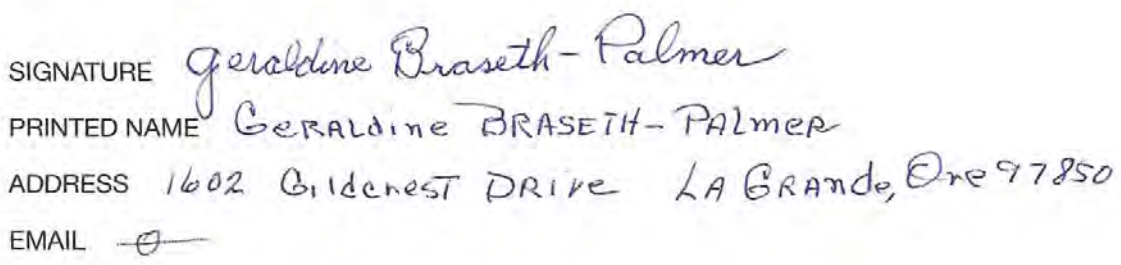 SIGNATURE Geraldine Braseth-Palmer
PRINTED NAME GeRALdine BRASETH-PALmeR
ADDRESS 1602 GildcresT DRIve LA GRANde, Ore 97850
EMAIL